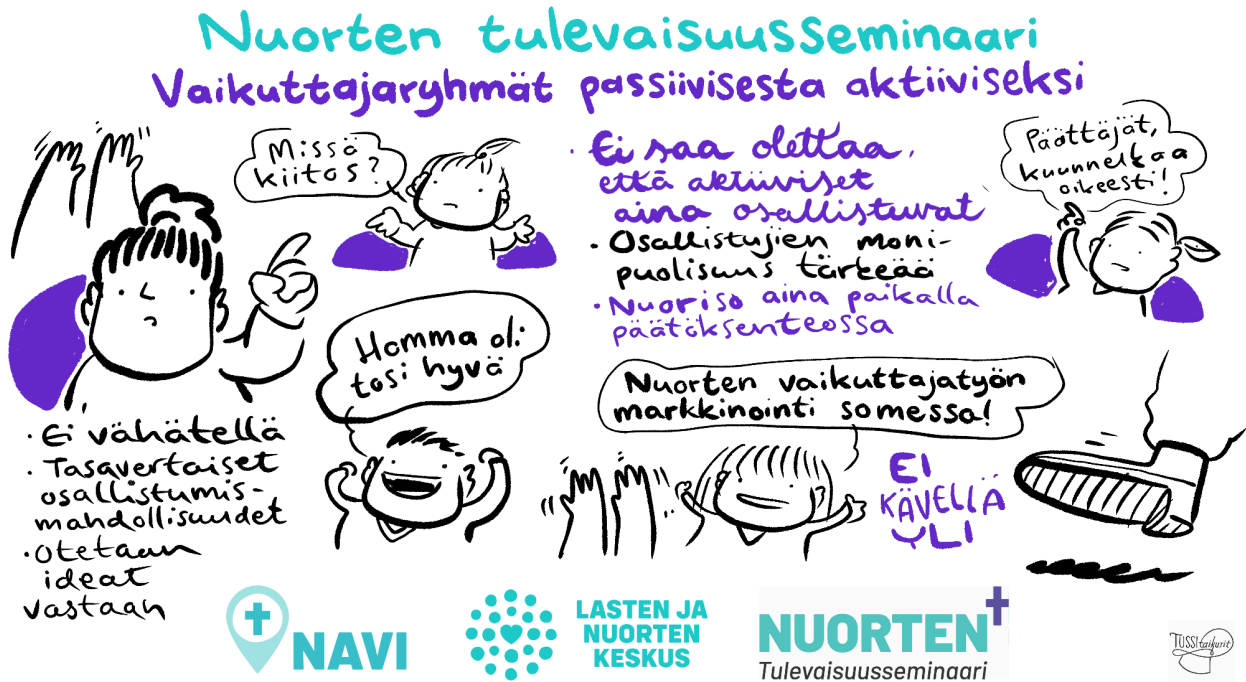 Nuorten tulevaisuusseminaari
Vaikuttajaryhmät passiivisesta aktiiviseksi
Missä
kiitos?
· Ei saa olettaa,
että aktiiviset
aina osallistuvat
· Osallistujien moni-
puolisuus tärkeää
· Nuoriso aina paikalla
päätöksenteossa
Päättäjät,
kuunnelkaa
oikeesti!
Homma oli
tosi hyvä
Nuorten vaikuttajatyön
markkinointi somessa!
· Ei vähätellä
· Tasavertaiset
osallistumis-
mahdollisuudet
· Otetaan
ideat
vastaan
EI
KÄVELLÄ
YLI
NAVI
LASTEN JA
NUORTEN
KESKUS
NUORTEN
Tulevaisuusseminaari
TUSSItaikurit